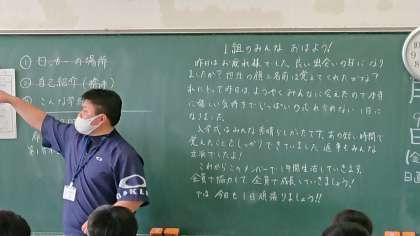 ① ロッカーの場所
② 自己紹介
③ こんな学級
1組のみんな おはよう!
昨日はお疲れ様でした。良い出会いの日になり
ましたか? 担任の顔と名前は覚えてくれたかな?
昨日はようやくみんなに会えたので
嬉しい気持ちでいっぱいの忘れられない1日に
なりました。
入学式はみんな素晴らしかったです。あの短い時間で
覚えたことをしっかりできていました。返事もみんな
立派でしたよ!
これからこのメンバーで1年間生活していきます。
全員で協力して、全員で成長していきましょう!
では、今日も1日頑張りましょう!!